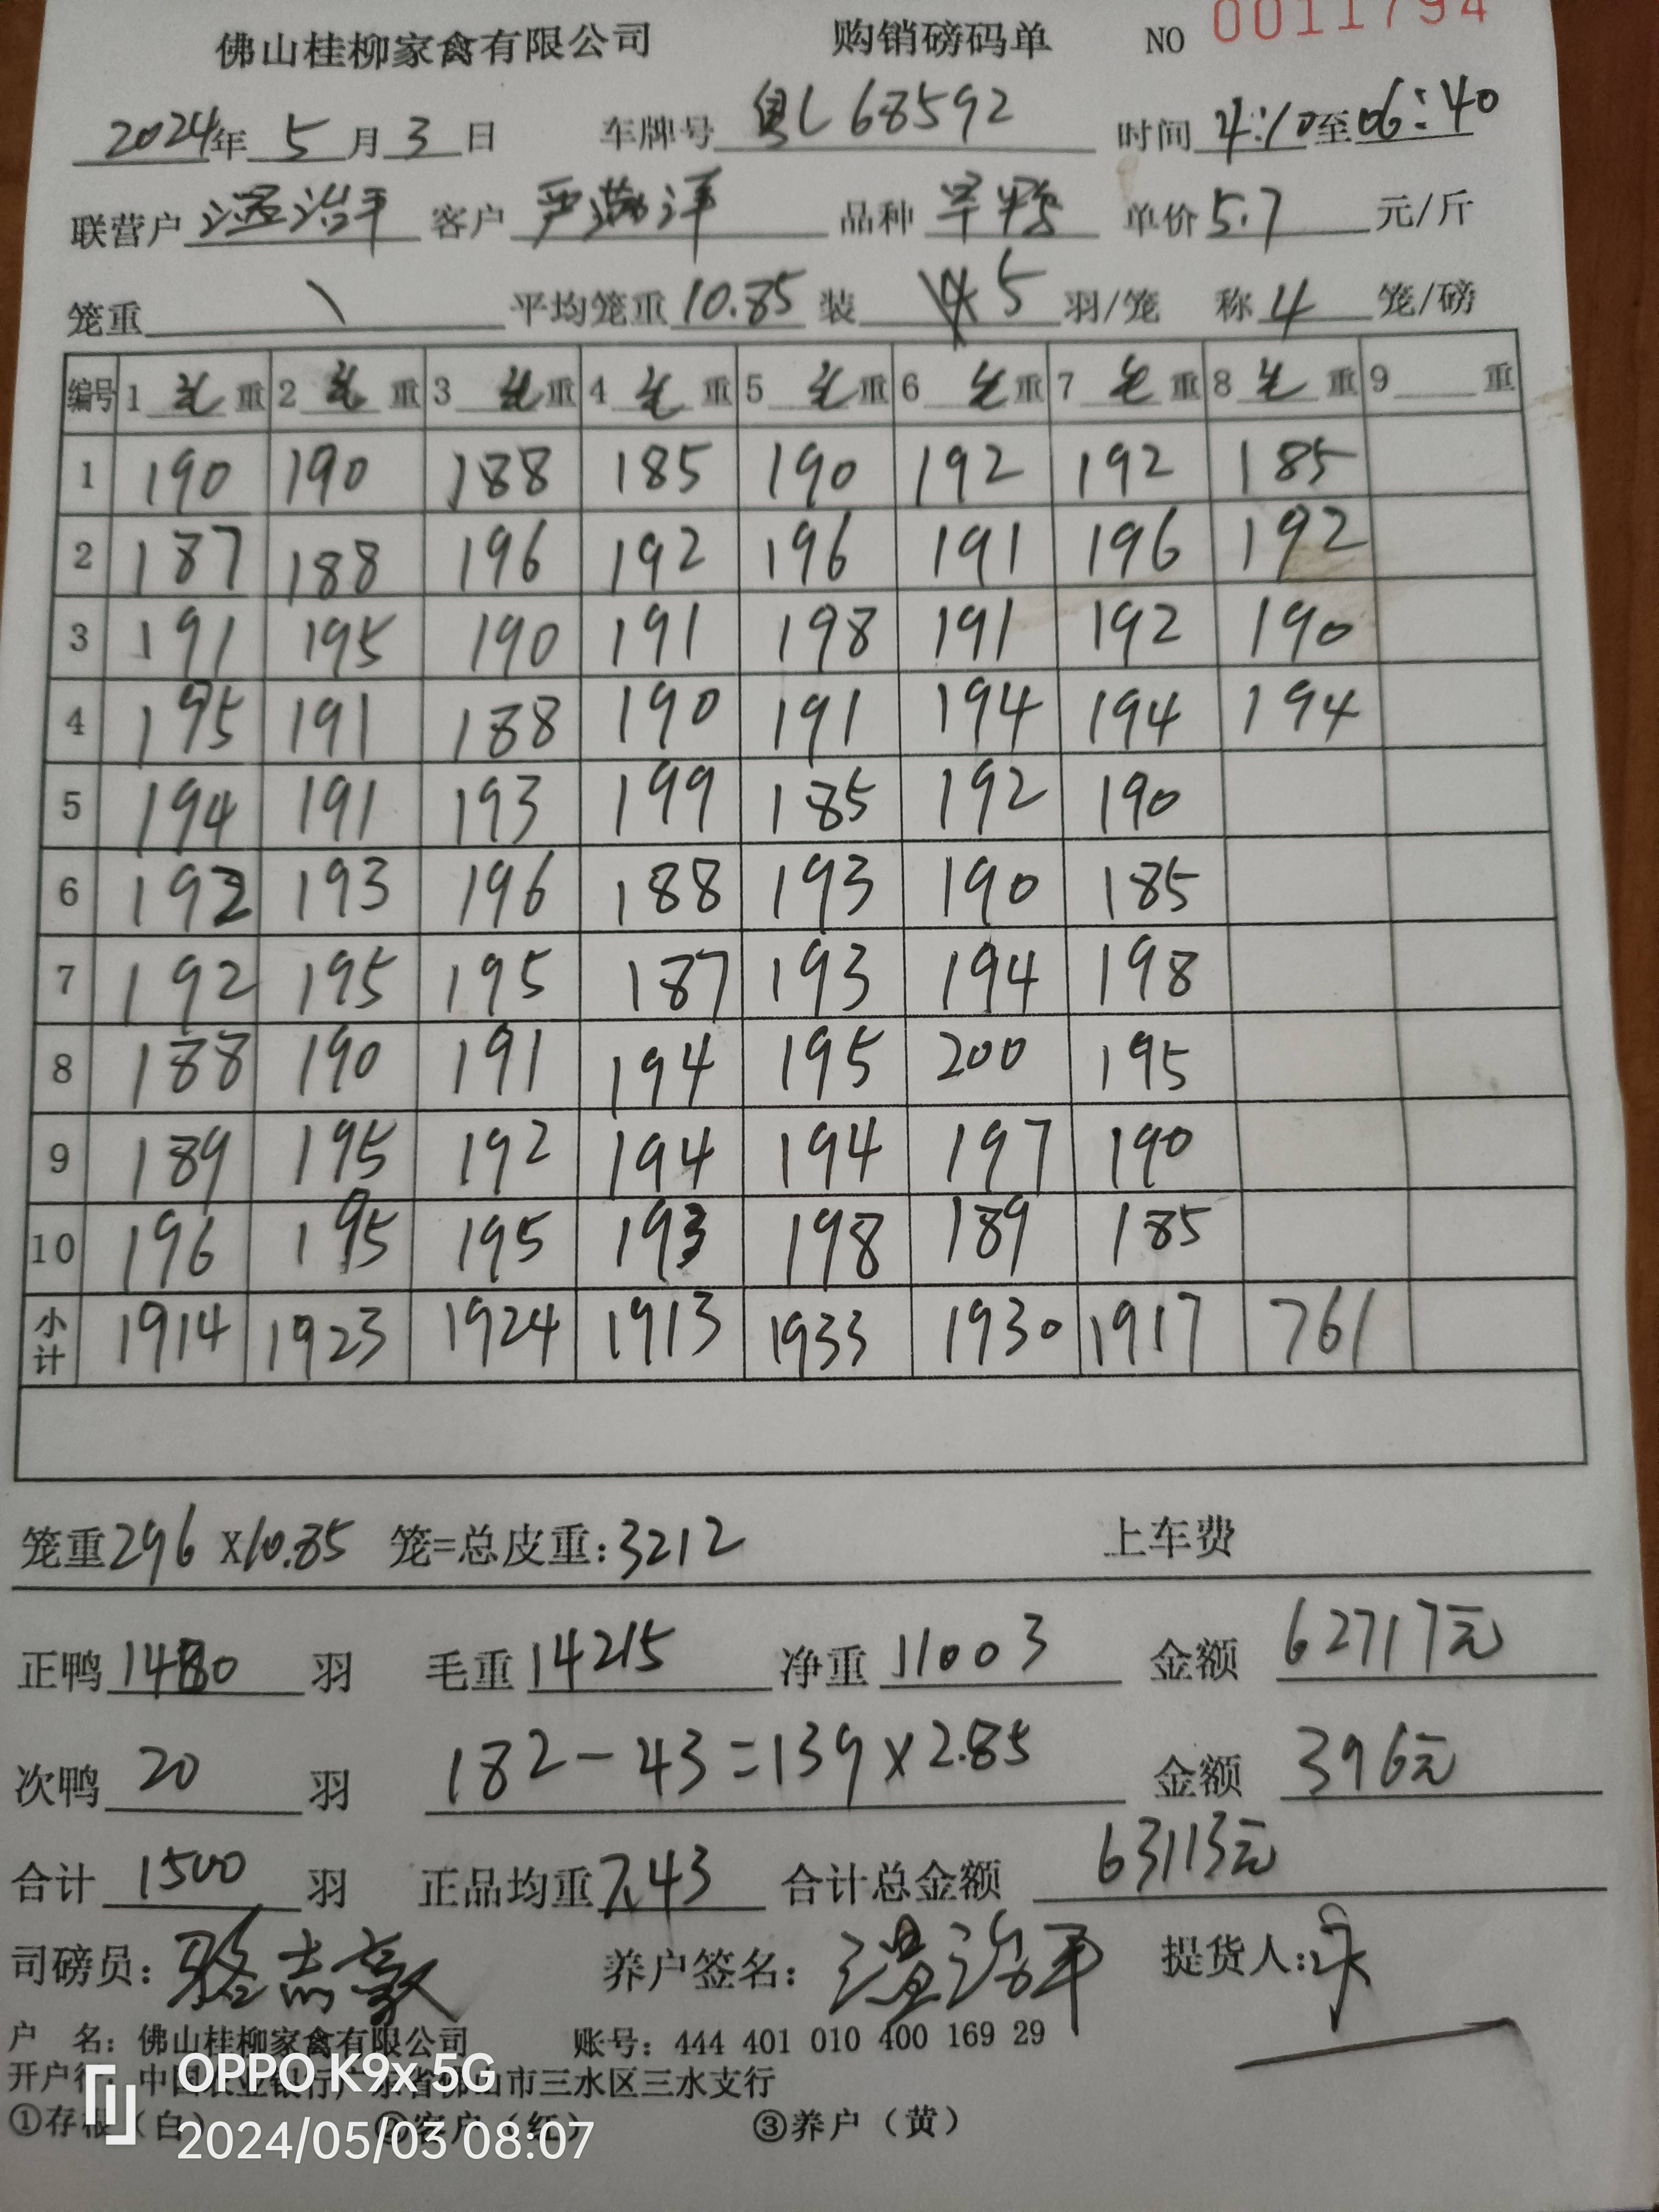 佛山桂柳家禽有限公司 购销磅码单 NO 0011794
2024年 5 月 3 日 车牌号 粤L68592 时间 4:10至06:40
联营户 温治平 客户 严 洋 品种 单价 5.7 元/斤
笼重 \ 平均笼重 10.85 装 5 羽/笼 称 4 笼/磅
编号 1 毛 重 2 毛 重 3 毛 重 4 毛 重 5 毛 重 6 毛 重 7 毛 重 8 毛 重 9 重
1 190 190 188 185 190 192 192 185
2 187 188 196 192 196 191 196 192
3 191 195 190 191 198 191 192 190
4 195 191 188 190 191 194 194 194
5 194 191 193 199 185 192 190
6 192 193 196 188 193 190 185
7 192 195 195 187 193 194 198
8 188 190 191 194 195 200 195
9 189 195 192 194 194 197 190
10 196 195 195 193 198 189 185
小计 1914 1923 1924 1913 1933 1930 1917 761
笼重296 X10.85 笼=总皮重:3212 上车费
正鸭 1480 羽 毛重 14215 净重 11003 金额 62717元
次鸭 20 羽 182-43=139×2.85 金额 396元
合计 1500 羽 正品均重 7.43 合计总金额 63113元
司磅员: 骆志豪 养户签名: 温治平 提货人:
户 名: 佛山桂柳家禽有限公司 账号: 444 401 010 400 169 29
开户行: 中国农业银行广东省佛山市三水区三水支行
①存根(白) ②客户(红) ③养户(黄)
OPPO K9x 5G
2024/05/03 08:07